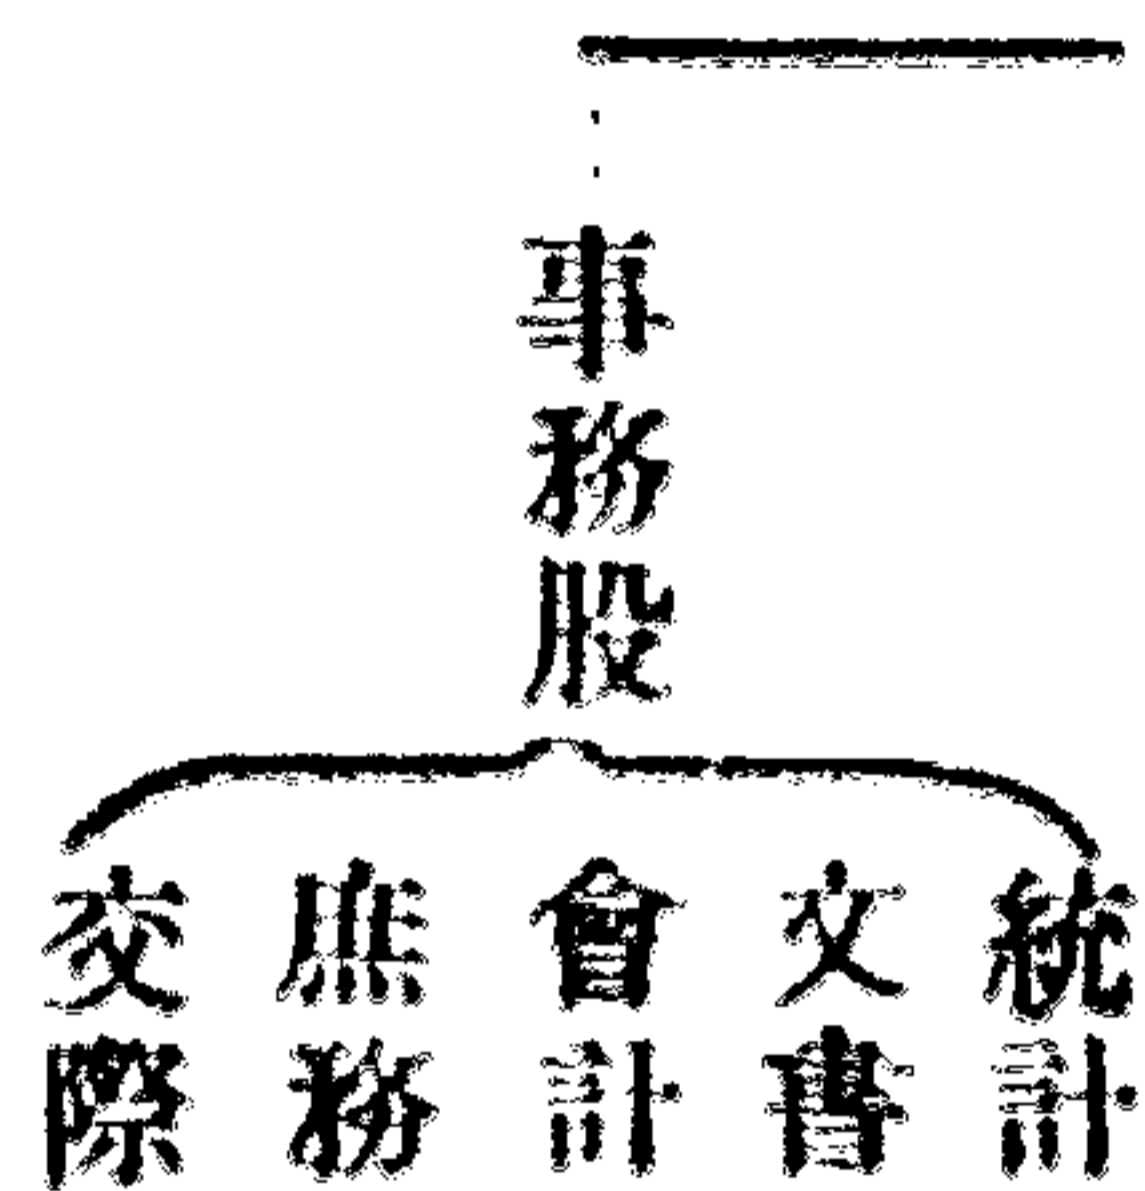 事務股
統計
文書
會計
庶務
交際